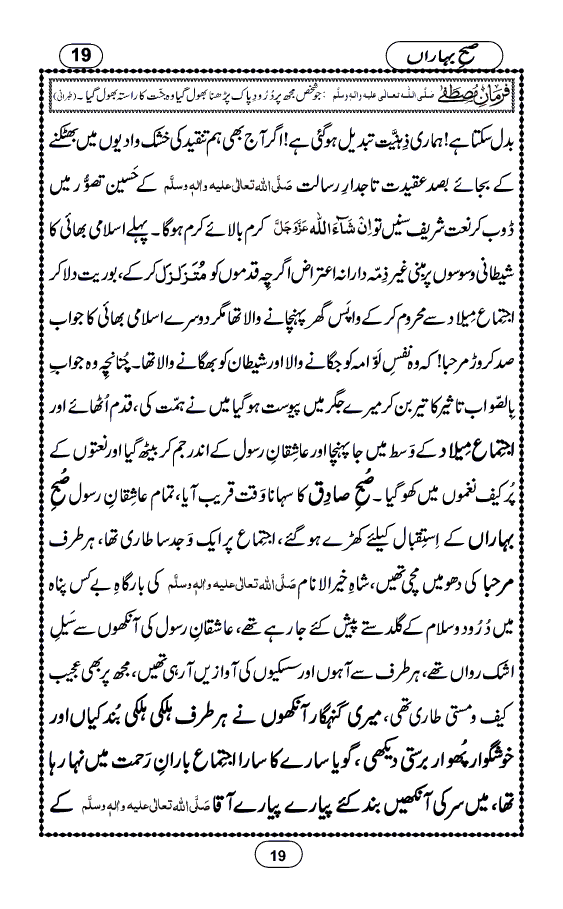 صبحِ بہاراں
19
فرمانِ مصطَفٰے صلَّی اللہ تعالٰی علیہ واٰلہٖ وسلَّم : جو شخص مجھ پر دُرُودِ پاک پڑھنا بھول گیا وہ جنّت کا راستہ بھول گیا۔ (طبرانی)
بدل سکتا ہے! ہماری ذِہنیّت تبدیل ہو گئی ہے! اگر آج بھی ہم تنقید کی خشک وادیوں میں بھٹکنے
کے بجائے بصد عقیدت تاجدارِ رسالت صَلَّی اللہُ تَعَالٰی عَلَیْہِ وَاٰلِہٖ وَسَلَّم کے حَسین تصوُّر میں
ڈوب کر نعت شریف سنیں تو اِنْ شَآءَ اللہ عَزَّوَجَلَّ کرم بالائے کرم ہوگا۔ پہلے اسلامی بھائی کا
شیطانی وسوسوں پر مبنی غیر ذِمّہ دارانہ اعتراض اگرچِہ قدموں کو مُتَزَلزَل کر کے، بوریت دلا کر
اجتماعِ میلاد سے محروم کر کے واپَس گھر پہنچانے والا تھا مگر دوسرے اسلامی بھائی کا جواب
صد کروڑ مرحبا! کہ وہ نفسِ لَوّامہ کو جگانے والا اور شیطان کو بھگانے والا تھا۔ چُنانچِہ وہ جوابِ
بِالصَّواب تاثیر کا تیر بن کر میرے جگر میں پیوست ہو گیا میں نے ہمّت کی، قدم اُٹھائے اور
اجتماعِ میلاد کے وَسط میں جا پہنچا اور عاشِقانِ رسول کے اندر جم کر بیٹھ گیا اور نعتوں کے
پُر کیف نغموں میں کھو گیا۔ صُبحِ صادِق کا سہانا وَقت قریب آیا، تمام عاشِقانِ رسول صُبحِ
بہاراں کے اِستِقبال کیلئے کھڑے ہو گئے، اجتِماع پر ایک وَجد سا طاری تھا، ہر طرف
مرحبا کی دھومیں مچی تھیں، شاہِ خیرُالانام صَلَّی اللہُ تَعَالٰی عَلَیْہِ وَاٰلِہٖ وَسَلَّم کی بارگاہِ بے کس پناہ
میں دُرُود و سلام کے گلدستے پیش کئے جا رہے تھے، عاشِقانِ رسول کی آنکھوں سے سَیلِ
اشک رواں تھے، ہر طرف سے آہوں اور سسکیوں کی آوازیں آ رہی تھیں، مجھ پر بھی عجیب
کیف و مستی طاری تھی، میری گنہگار آنکھوں نے ہر طرف ہلکی ہلکی بُندکیاں اور
خوشگوار پُھوار برستی دیکھی، گویا سارے کا سارا اجتماع بارانِ رَحمت میں نہا رہا
تھا، میں سر کی آنکھیں بند کئے پیارے پیارے آقا صَلَّی اللہُ تَعَالٰی عَلَیْہِ وَاٰلِہٖ وَسَلَّم کے
19